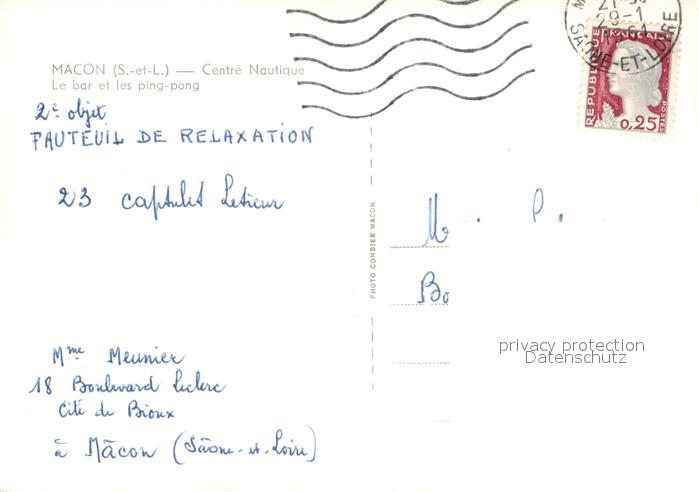 MACON (S.-et-L.) — Centre Nautique
Le bar et les ping-pong
2e objet
FAUTEUIL DE RELAXATION
23
Mme Meunier
18 Boulevard Leclerc
Cité de Bioux
à Mâcon (Sâone-et-Loire)
PHOTO COMBIER MACON
29-1
SAONE-ET-LOIRE
REPUBLIQUE FRANCAISE
POSTES
0,25
M
Bo
privacy protection
Datenschutz